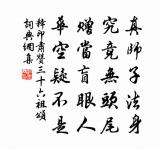 真師子法身
究竟無頭尾
贈當盲眼人
華空疑不是
釋印肅贊三十六祖頌
詞典網集